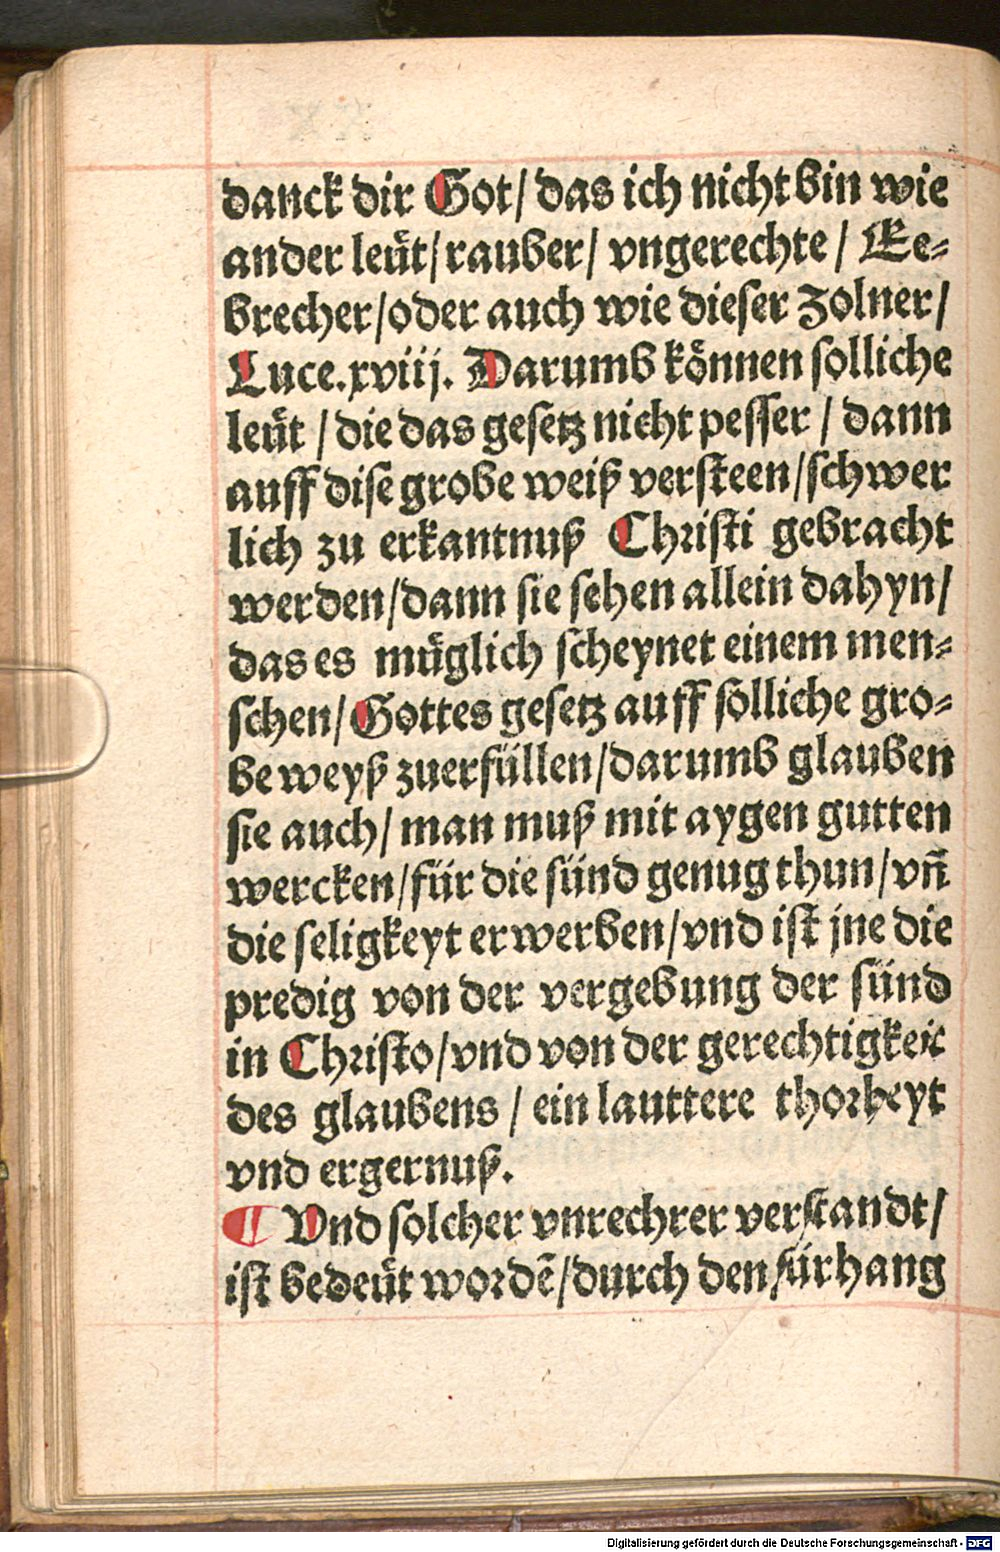 danck dir Got/ das ich nicht bin wie
ander leüt/ rauber/ vngerechte/ Ee⸗
brecher/oder auch wie dieser Zolner/
Luce.xviij. Darumb können solliche
leüt / die das gesetz nicht pesser / dann
auff dise grobe weiß versteen/schwer
lich zu erkantnuß Christi gebracht
werden/dann sie sehen allein dahyn/
das es müglich scheynet einem men⸗
schen/ Gottes gesetz auff solliche gro⸗
be weyß zuerfüllen/darumb glauben
sie auch/ man muß mit aygen gutten
wercken/für die sünd genug thun/vñ
die seligkeyt erwerben/vnd ist jne die
predig von der vergebung der sünd
in Christo/vnd von der gerechtigkeit
des glaubens / ein lauttere thorheyt
vnd ergernuß.
¶ Vnd solcher vnrechrer verstandt/
ist bedeüt wordẽ/durch den fürhang
Digitalisierung gefördert durch die Deutsche Forschungsgemeinschaft - DFG